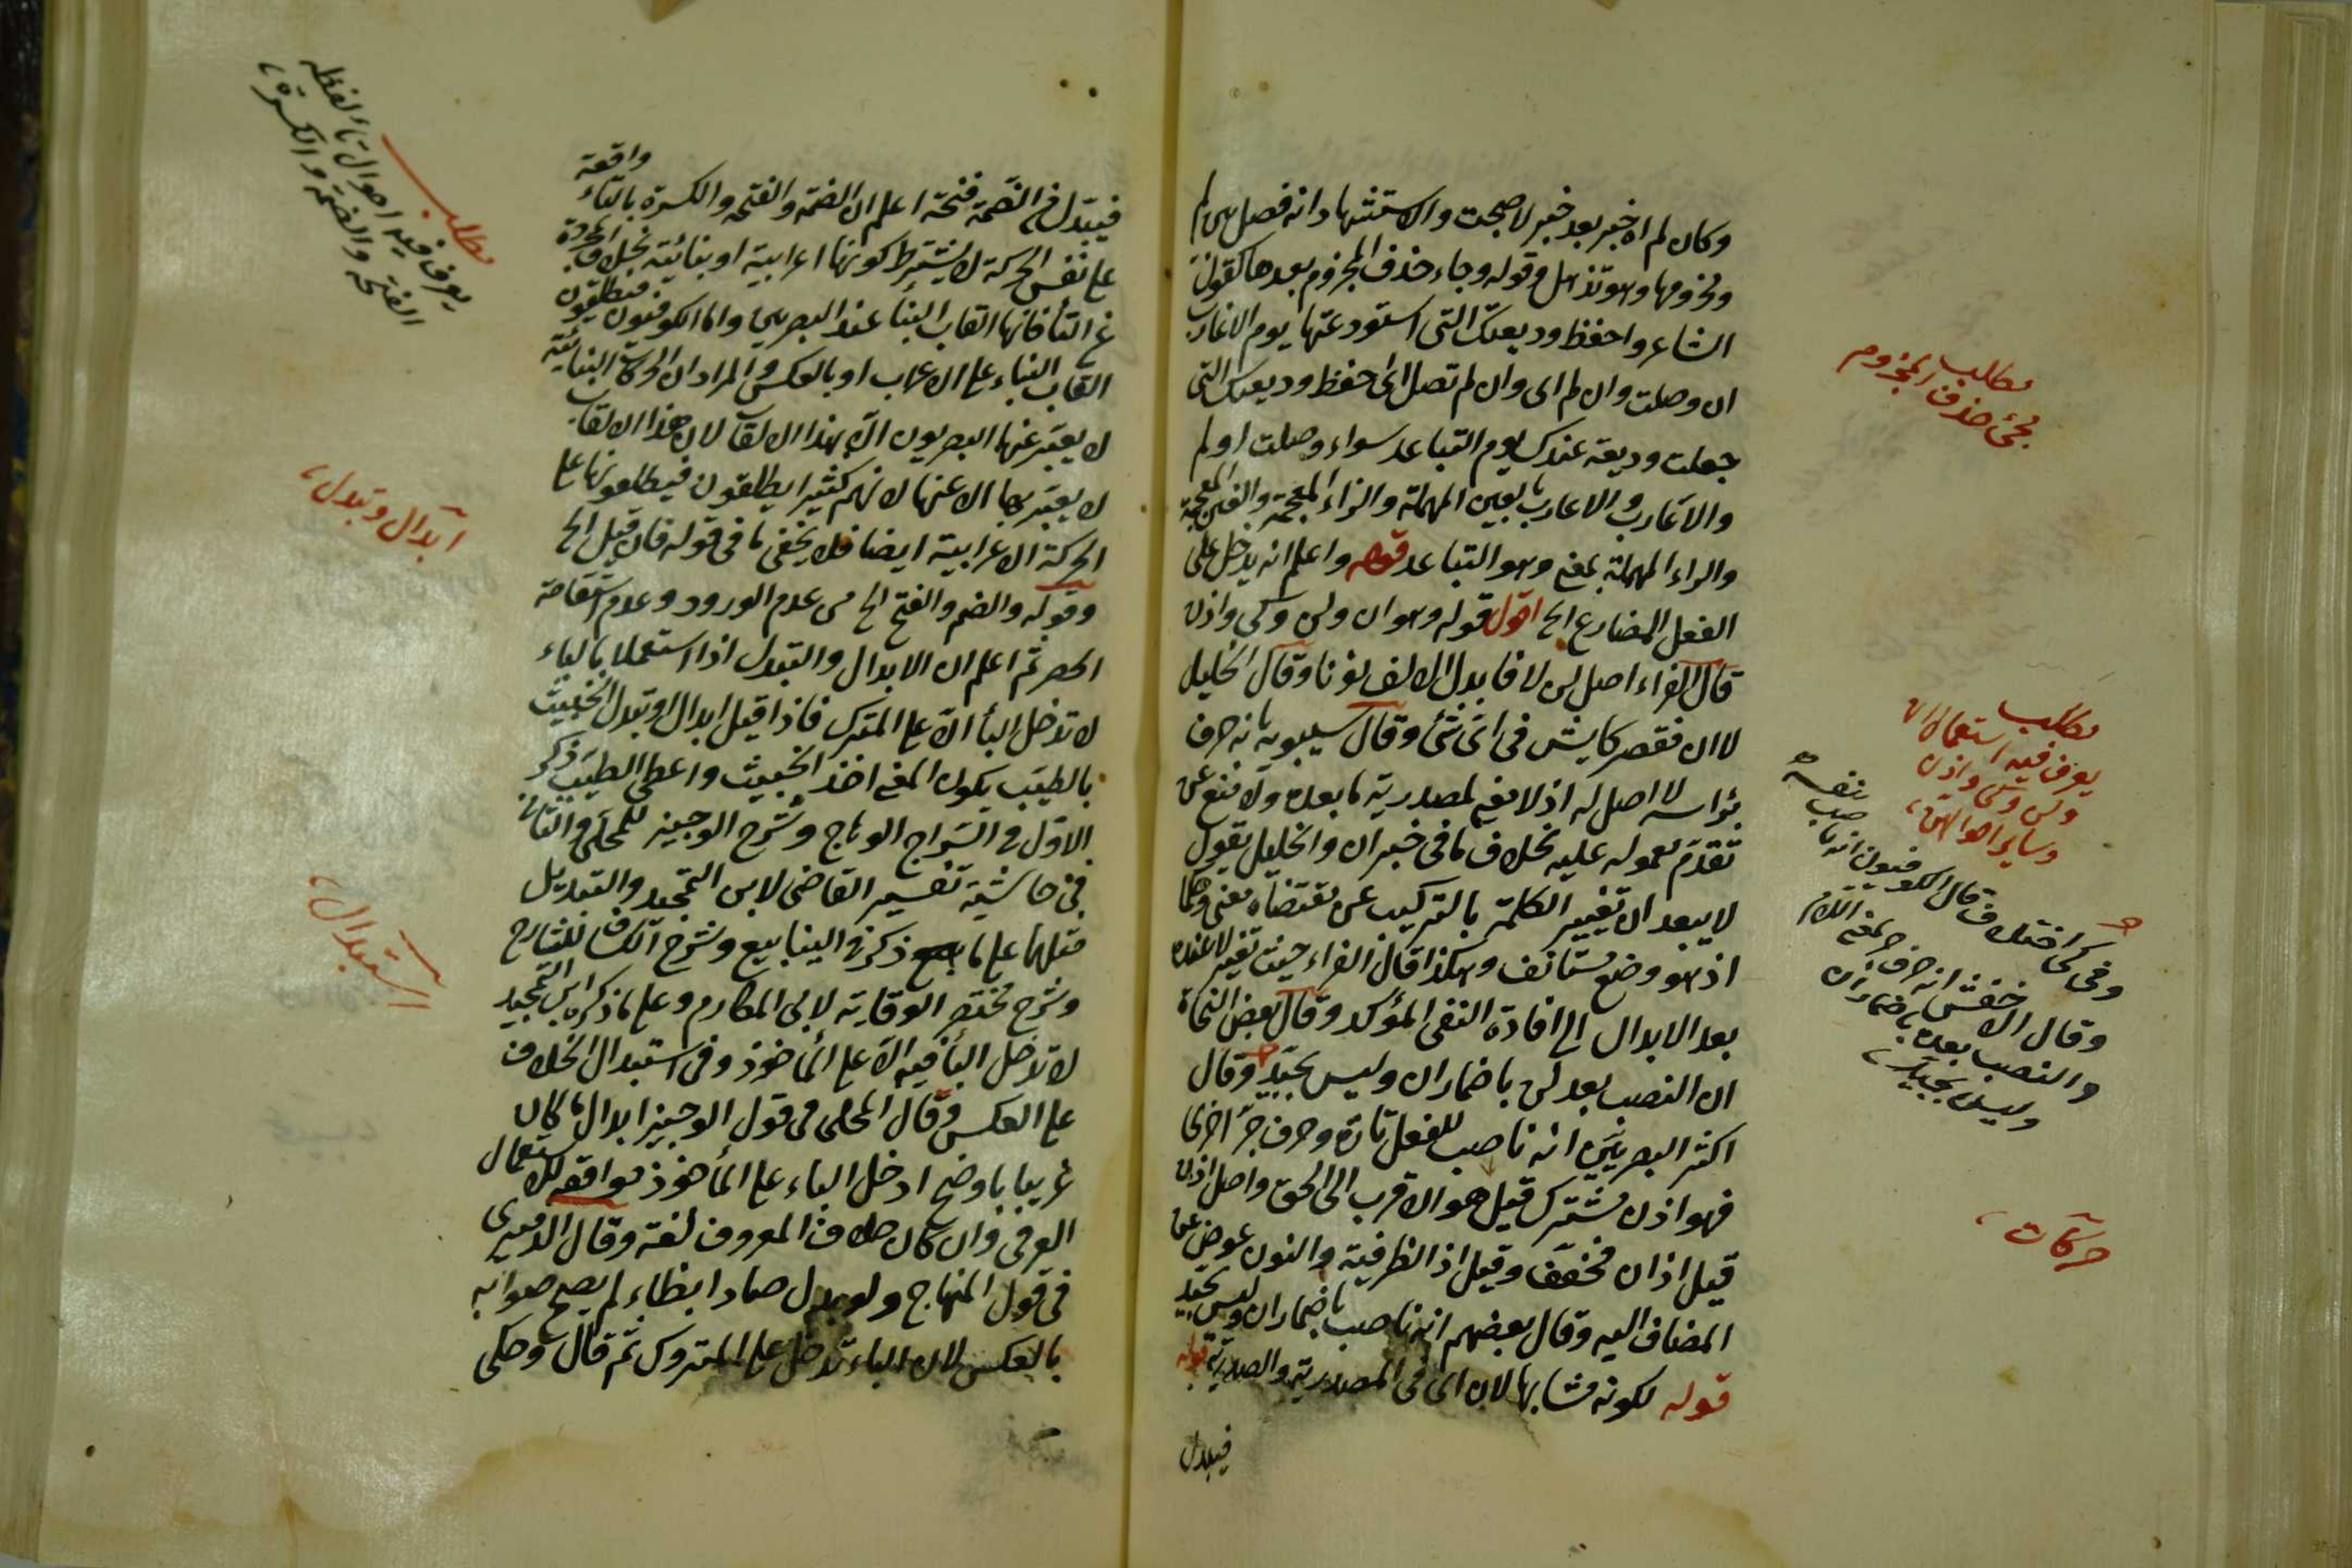 وكان لم اه خبر بعد خبر لاصبحت والاستشهاد انه فصل بين لم
ومجزومها وهو تذهل وقوله وجاء حذف المجزوم بعدها كقول
الشاعر واحفظ وديعتك التي استودعتها يوم الاعازب
ان وصلت وان لم اى وان لم تصل اى احفظ وديعتك التي
جعلت وديعة عندك يوم التباعد سواء وصلت او لم
والاعازب والاغارب بالعين المهملة والزاء المعجمة والغين المعجمة
والراء المهملة بمعنى وهو التباعد قوله واعلم انه يدخل على
الفعل المضارع الخ اقول قوله وهو ان ولن وكى واذن
قال الفراء اصل لن لا فابدل الالف نونا وقال الخليل
لا ان فقصر كايش فى اى شئ وقال سيبويه بانه حرف
برأسه لا اصل له اذ لا معنى لمصدرية ما بعده ولا منع عن
تقدم معموله عليه بخلاف ما فى خبر ان والخليل يقول
لا يبعد ان تغيير الكلمة بالتركيب عن مقتضاه معنى وعملا
اذ هو وضع مستانف وهكذا قال الفراء حيث تغير لا عنده
بعد الابدال الى افادة النفى المؤكد وقال بعض النحاة
ان النصب بعد لن باضمار ان وليس بجيد وقال
اكثر البصريين انه ناصب للفعل تارة وحرف جر اخرى
فهو اذن مشترك قيل هو الاقرب الى الحق واصل اذن
قيل اذ ان فخفف وقيل اذ الظرفية والنون عوض عن
المضاف اليه وقال بعضهم انه ناصب باضمار ان وليس بجيد
قوله لكونه مشابها لان اى فى المصدرية والصدرية قوله
فيبدل
مطلب
مجئ حذف المجزوم
مطلب
يعرف فيه استعمال ان
ولن وكى واذن
وسائر احوالهن
وفى كى اختلاف قال الكوفيون انه ناصب بنفسه
وقال الاخفش انه حرف جر بمعنى اللام
والنصب بعده باضمار ان
وليس بجيد
حركات
واقعة
فيبدل من الضمة فتحة اعلم ان الضمة والفتحة والكسرة بالتاء
على نفس الحركة لا يشترط كونها اعرابية او بنائية بخلاف المجردة
عن التاء فانها القاب البناء عند البصريين واما الكوفيون فيطلقون
القاب البناء على الاعراب او بالعكس والمراد ان الحركات البنائية
لا يعبر عنها البصريون الا بهذا الالقاب لان هذا الالقاب
لا يعبر بها الا عنها لانهم كثيرا يطلقون فيطلقونها على
الحركة الاعرابية ايضا فلا يخفى ما فى قوله فان قيل الخ
وقوله والضم والفتح الخ من عدم الورود وعدم استقامة
الحصر ثم اعلم ان الابدال والتبدل اذا استعملا بالباء
لا تدخل الباء الا على المتروك فاذا قيل ابدال او تبدل الخبيث
بالطيب يكون المعنى اخذ الخبيث واعطى الطيب ذكر
الاول فى السراج الوهاج وشرح الوجيز للمحلى والثانى
فى حاشية تفسير القاضى لابن التمجيد والتبديل
مثلهما على ما ذكر فى الينابيع وشرح الكشاف للشارح
وشرح مختصر الوقاية لابى المكارم وعلى ما ذكره ابن التمجيد
لا تدخل الباء فيه الا على المأخوذ وفى استبدال الخلاف
على العكس وقال المحلى فى قول الوجيز ابدال ما كان
غريبا باوضح ادخل الباء على المأخوذ موافقة للاستعمال
العرفى وان كان خلاف المعروف لغة وقال الدميرى
فى قول المنهاج ولو بدل ضادا بظاء لم يصح صوابه
بالعكس لان الباء تدخل على المتروك ثم قال وحكى
مطلب
يعرف فيه احوال تاء لفظة
الفتحة والضمة والكسرة
ابدال وتبدل
استبدال